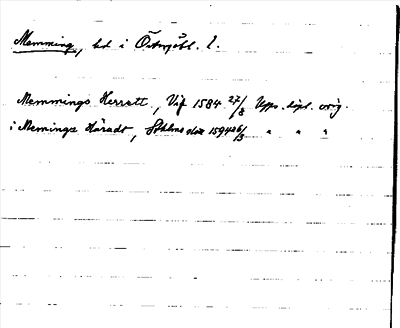 Memming, hd i Östergötl. l.
Memmings Herratt, Vif 1584 27/8 Upps. dipl. orig.
i Memings Häradt, Sthlms slott 1594 26/3 " " "